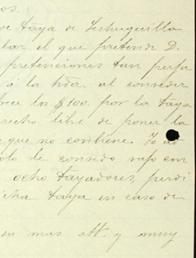 os.
de taya de Lechuguilla
lar, el que pretende D.
pretenciones tan perju
á la hda. al conceder
rece los $100. por la taya
recho libre de poner la
que no contiene. Yo
solo le consido rajo en
ocho tayadores, perdi
icha taya en caso de
en mas att. y muy